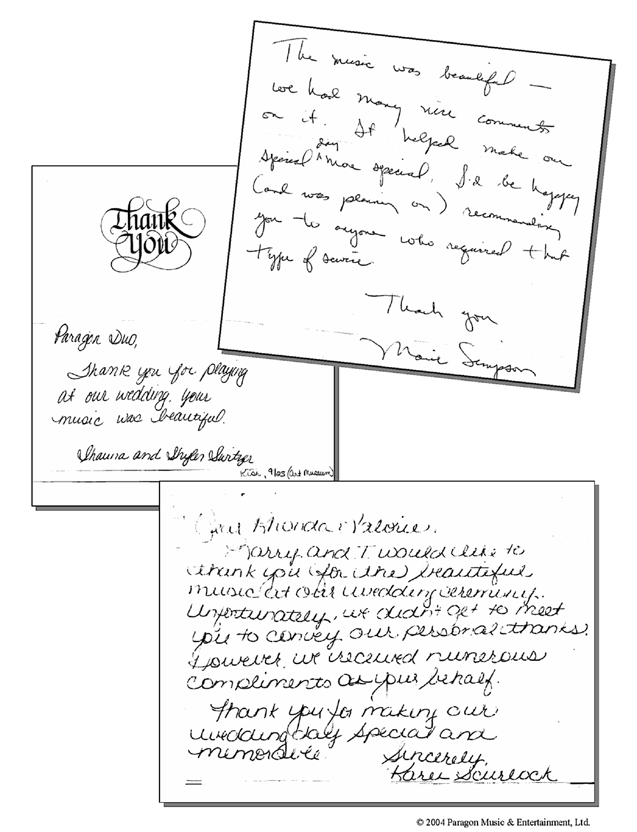 The music was beautiful —
we had many nice comments
on it. It helped make our
special day more special. I'd be happy
(and was planning on) recommending
you to anyone who required that
type of service.
Thank you
Marie Simpson
Thank
You
Paragon Duo,
Thank you for playing
at our wedding. Your
music was beautiful.
Shauna and Skyler Switzer
9/03 (Art Museum)
Dear Rhonda & Valorie,
Harry and I would like to
thank you (for the) beautiful
music at our wedding ceremony.
Unfortunately, we didn't get to meet
you to convey our personal thanks.
However, we received numerous
compliments as your behalf.
Thank you for making our
wedding day special and
memorable.
Sincerely,
Karen Scurlock
© 2004 Paragon Music & Entertainment, Ltd.